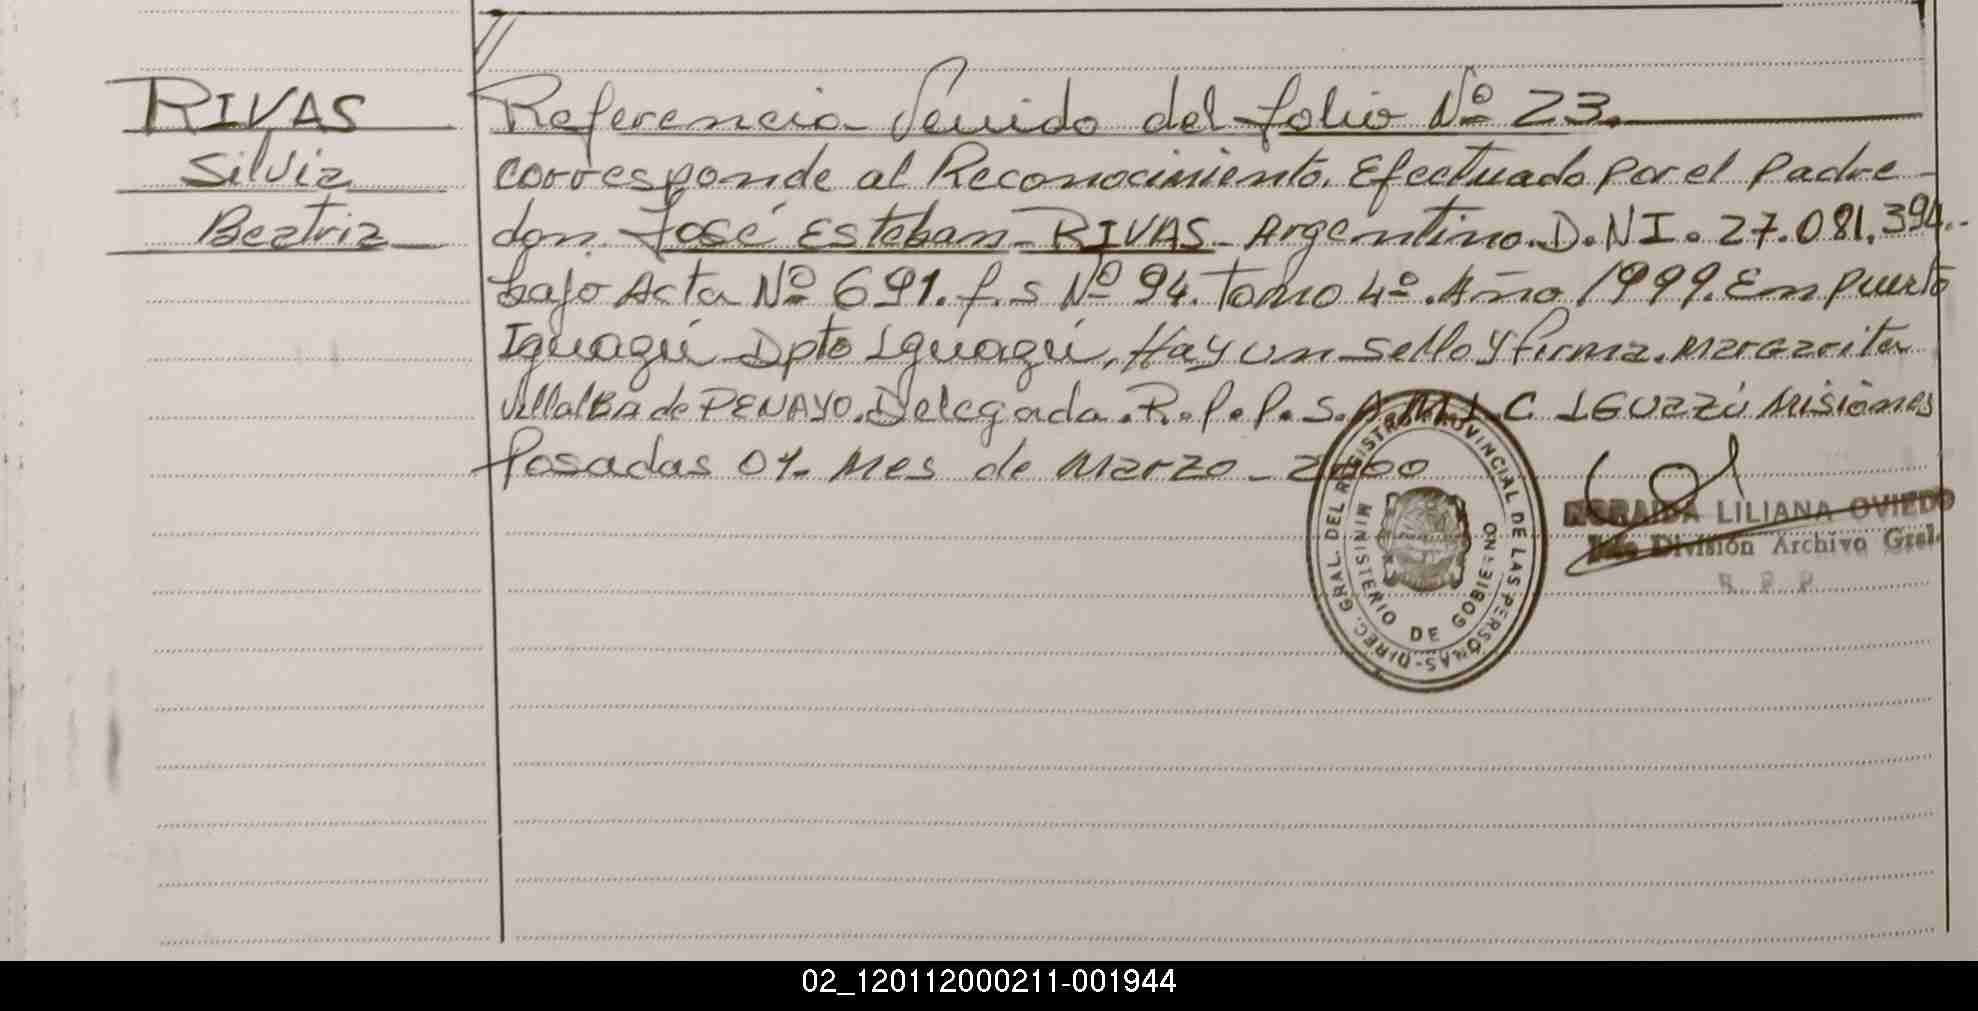 RIVAS
Silvia
Beatriz
Referencia Venido del folio Nº 23.
corresponde al Reconocimiento. Efectuado por el padre
don. José Esteban RIVAS. Argentino. D.NI. 27.081.394.-
bajo Acta Nº 691. f.s Nº 94. Tomo 4º. Año 1999. En puerto
Iguazú Dpto Iguazú, Hay un sello y firma. Margarita
Villalba de PENAYO. Delegada. R.P.P. S. C IGUAZÚ Misiones
Posadas 01. Mes de Marzo - 2000
DIREC. GRAL. DEL REGISTRO PROVINCIAL DE LAS PERSONAS-
MINISTERIO DE GOBIERNO
LILIANA OVIEDO
División Archivo Gral.
R. P. P.
02_120112000211-001944